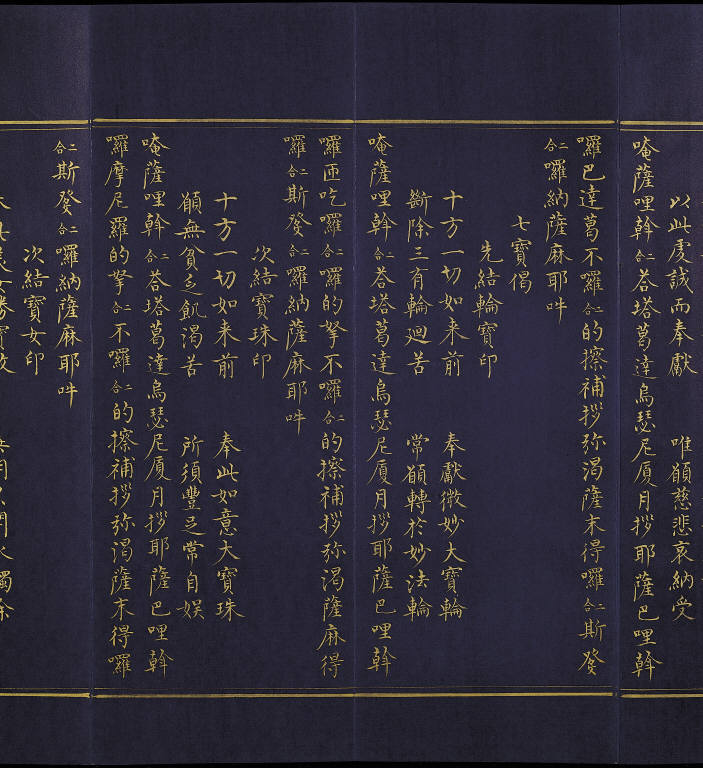 以此虔誠而奉獻 唯願慈悲哀納受
唵薩哩斡二合荅塔葛達烏瑟尼廈月拶耶薩巴哩斡
囉巴達葛不囉二合的擦補拶弥渴薩末得囉二合斯發
二合囉納薩麻耶吽
七寶偈
先結輪寶印
十方一切如来前 奉獻微妙大寶輪
斷除三有輪迴苦 常願轉於妙法輪
唵薩哩斡二合荅塔葛達烏瑟尼廈月拶耶薩巴哩斡
囉匝吃囉二合囉的拏不囉二合的擦補拶弥渴薩麻得
囉二合斯發二合囉納薩麻耶吽
次結寶珠印
十方一切如来前 奉此如意大寶珠
願無貧乏飢渴苦 所須豐足常自娱
唵薩哩斡二合荅塔葛達烏瑟尼廈月拶耶薩巴哩斡
囉摩尼羅的拏二合不囉二合的擦補拶弥渴薩末得囉
二合斯發二合囉納薩麻耶吽
次結寶女印